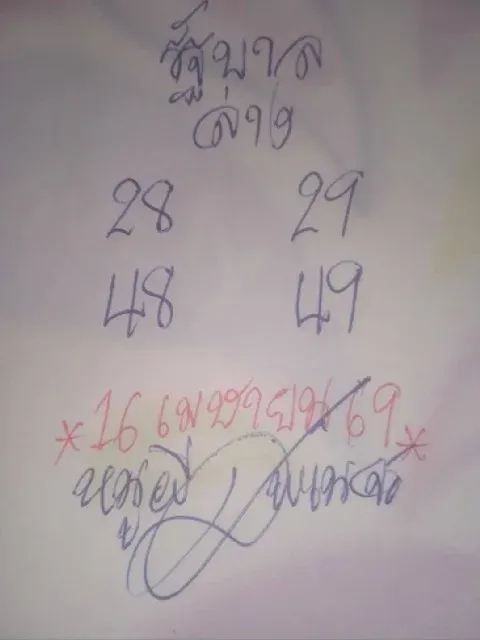 รัฐบาล
ล่าง
28 29
48 49
*16 เมษายน 69*
หมูมี